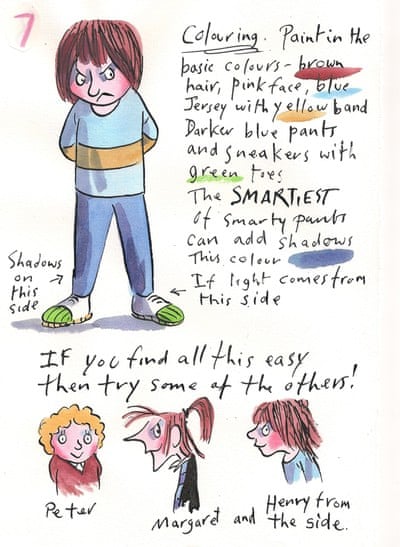 7
Colouring. Paint in the
basic colours - brown
hair, pink face, blue
Jersey with yellow band
Darker blue pants
and sneakers with
green toes
The SMARTIEST
Of smarty pants
can add shadows
This colour
If light comes from
this side
Shadows
on
this
side
IF you find all this easy
then try some of the others!
Peter
Margaret and Henry from
the side.